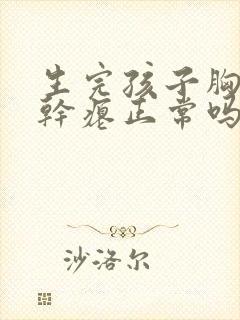 生完孩子胸
幹瘪正常吗
沙洛尔